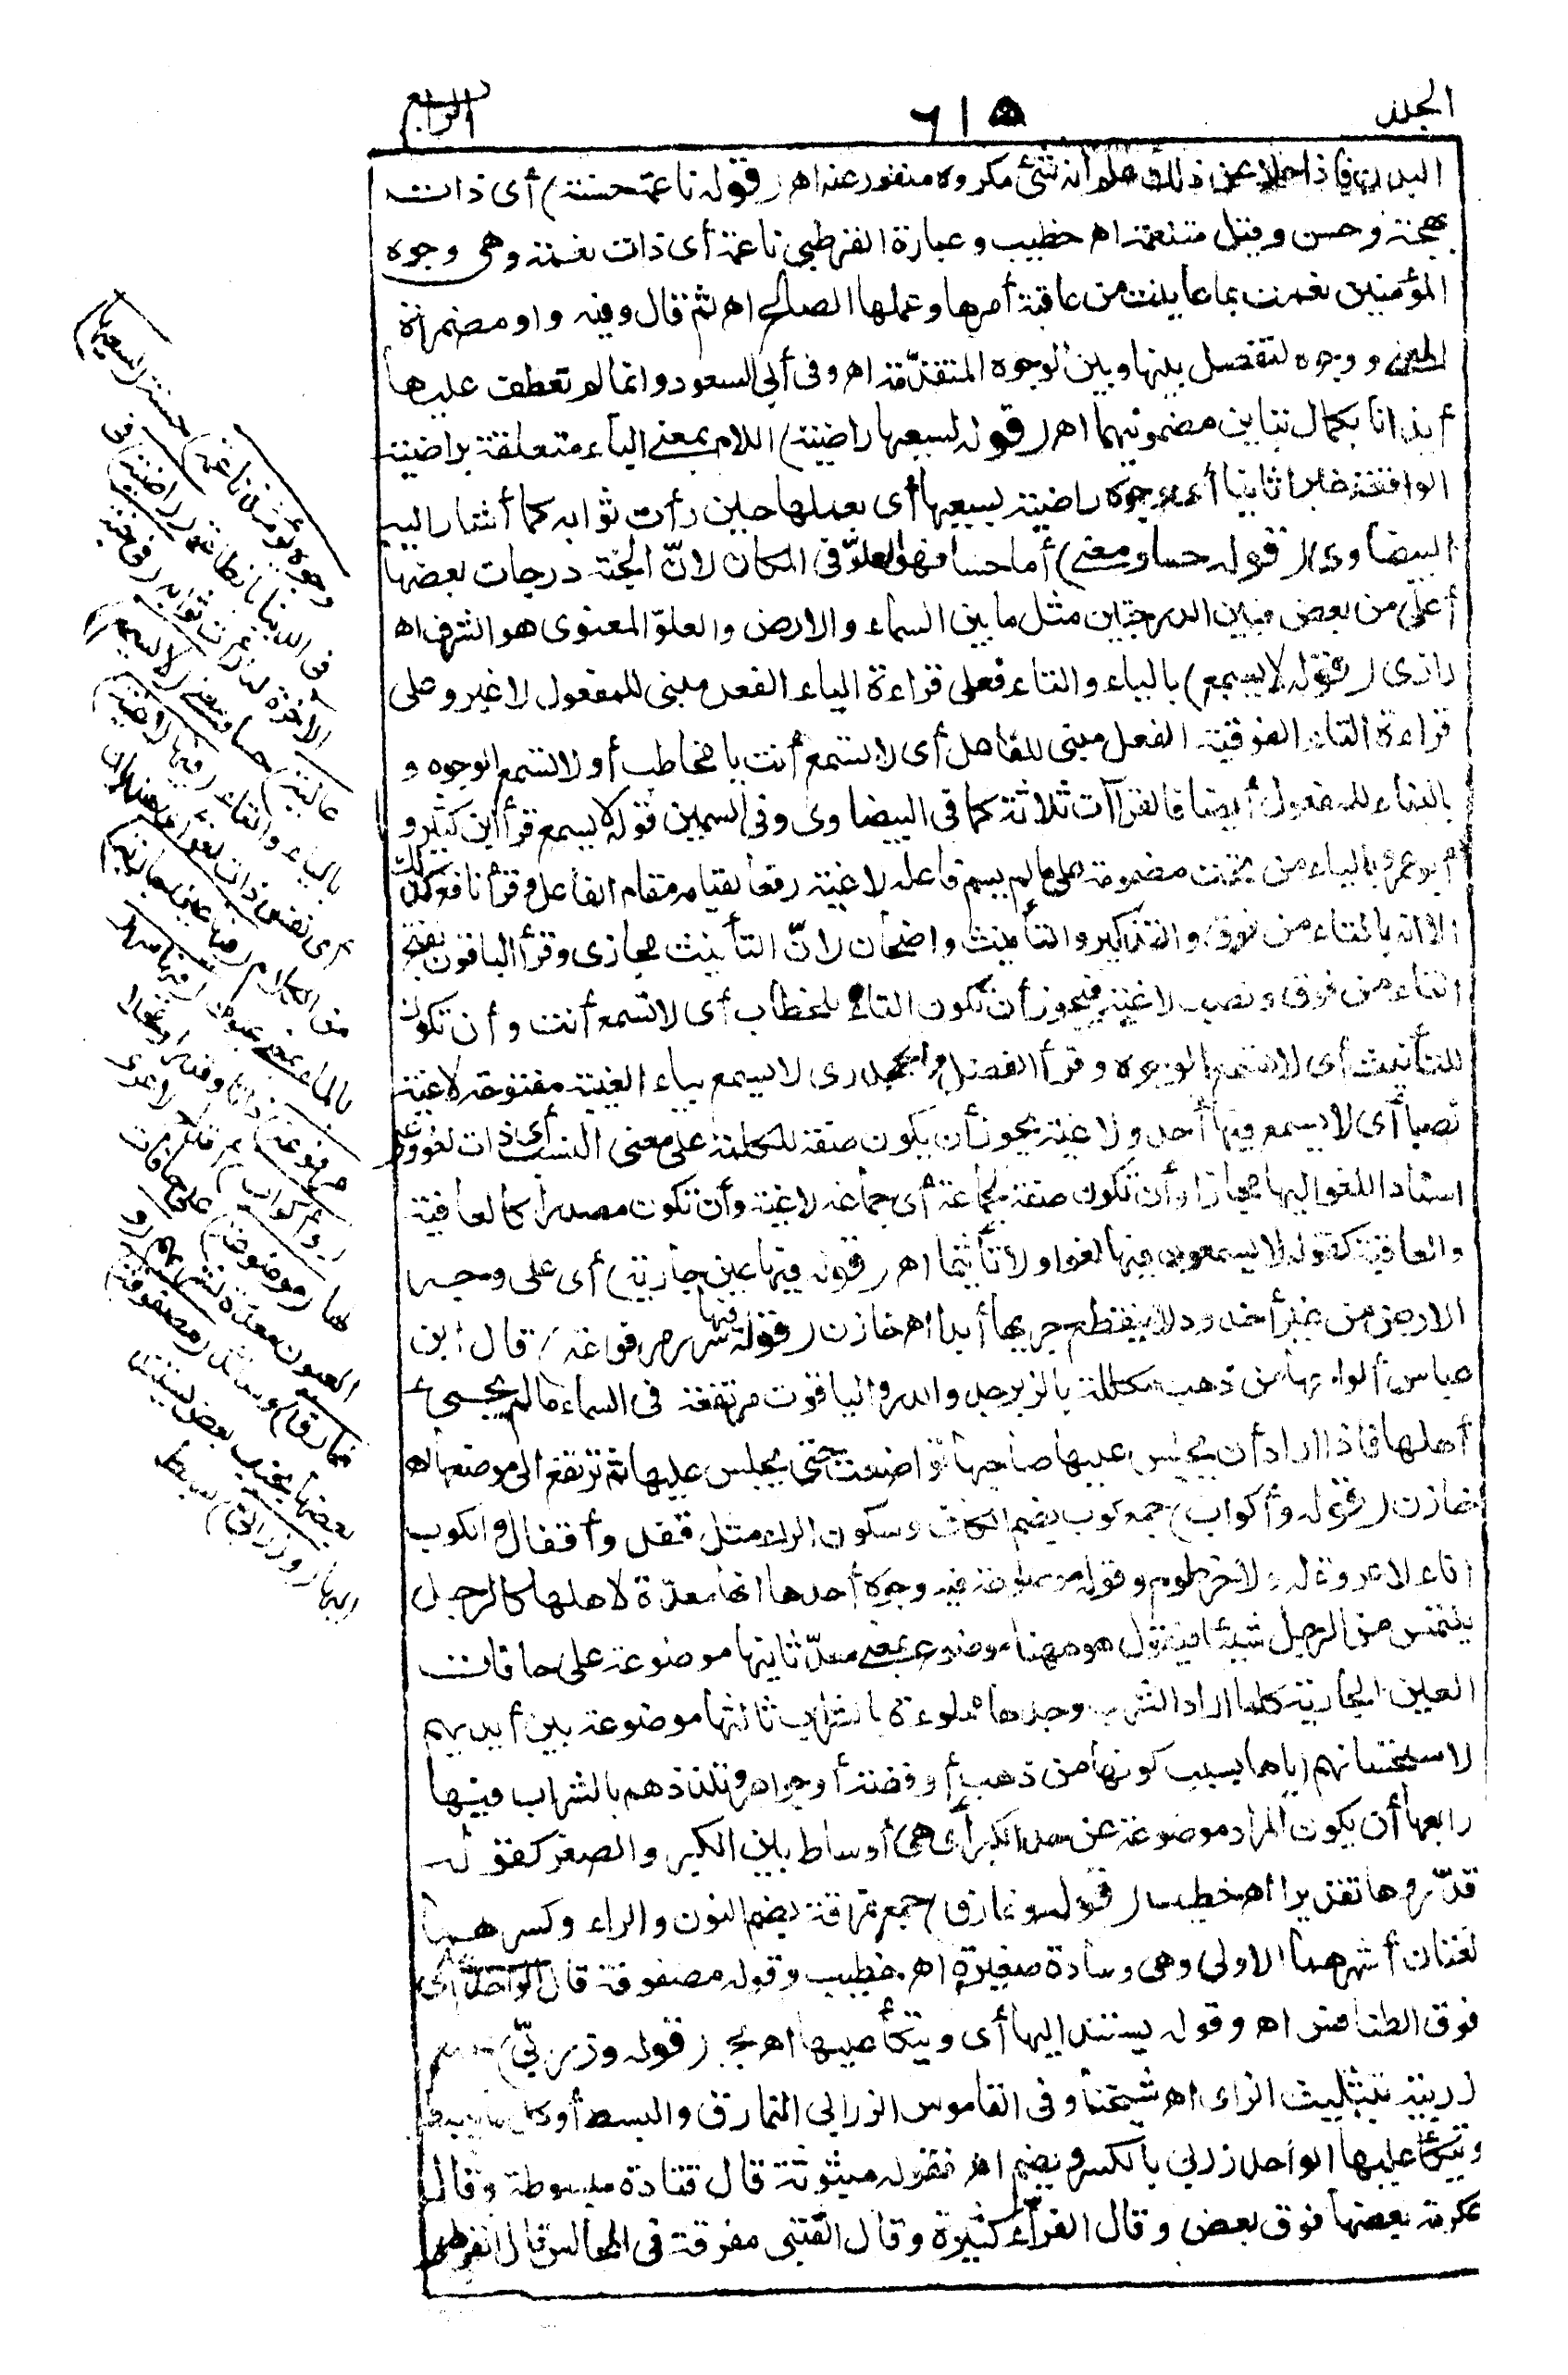 الجلد ٦١٥ الرابع
البدن فاذا خلا عن ذلك علم أنه شئ مكروه منفور عنه اهر (قوله ناعمة حسنة) أى ذات
بهجة وحسن وقيل متنعمة اهـ خطيب وعبارة القرطبى ناعمة أى ذات نعمة وهى وجوه
المؤمنين نعمت بما عاينت من عاقبة أمرها وعملها الصالح اهـ ثم قال وفيه واو مضمرة
المعنى ووجوه لتفصل بينها وبين الوجوه المتقدّمة اهـ وفى أبى السعود وانما لم تعطف عليها
أيذانا بكمال تباين مضمونيهما اهـ (قوله لسعيها راضية) اللام بمعنى الباء متعلقة براضية
الواقعة خبرا ثانيا أى وجوه راضية بسعيها أى بعملها حين رأت ثوابه كما أشار اليه
البيضاوى (قوله حسا ومعنى) أما حسا فهو العلوّ فى المكان لانّ الجنة درجات بعضها
أعلى من بعض فبين الدرجتين مثل ما بين السماء والارض والعلوّ المعنوى هو الشرف اهـ
رازى (قوله لا يسمع) بالياء والتاء فعلى قراءة الياء الفعل مبنى للمفعول لا غير وعلى
قراءة التاء الفوقية الفعل مبنى للفاعل أى لا تسمع أنت يا مخاطب أو لا تسمع الوجوه و
بالبناء للمفعول أيضا فالقراآت ثلاثة كما فى البيضاوى وفى السمين قوله لا يسمع قرأ ابن كثير و
أبو عمرو بالياء من تحت مضمومة على ما لم يسم فاعله لاغية رفعا لقيامه مقام الفاعل وقرأ نافع كذلك
الا انه بالتاء من فوق والتذكير والتأنيث واضحان لانّ التأنيث مجازى وقرأ الباقون بفتح
التاء من فوق ونصب لاغية فيجوز أن تكون التاء للخطاب أى لا تسمع أنت وأن تكون
للتأنيث أى لا تسمع الوجوه وقرأ الفضل والجحدرى لا يسمع بياء الغيبة مفتوحة لاغية
نصبا أى لا يسمع فيها أحد ولاغية يجوز أن يكون صفة للكلمة على معنى النسب أى ذات لغو وعلى
اسناد اللغو اليها مجازا وأن تكون صفة لجماعة أى جماعة لاغية وأن تكون مصدرا كالعافية
والعاقبة كقوله لا يسمعون فيها لغوا ولا تأثيما اهـ (قوله فيها عين جارية) أى على وجه
الارض من غير أخدود لا ينقطع جريها أبدا اهـ خازن (قوله فيها سرر مرفوعة) قال ابن
عباس ألواحها من ذهب مكللة بالزبرجد والدر والياقوت مرتفعة فى السماء ما لم يجئ
أهلها فاذا اراد أن يجلس عليها صاحبها تواضعت حتى يجلس عليها ثم ترتفع الى موضعها اهـ
خازن (قوله وأكواب) جمع كوب بضم الكاف وسكون الراء مثل قفل وأقفال والكوب
اناء لا عروة له ولا خرطوم وقوله موضوعة فيه وجوه أحدها انها معدّة لاهلها كالرجل
يلتمس من الرجل شيئا فيقول هو ههنا موضوع بمعنى معدّ ثانيها موضوعة على حافات
العين الجارية كلما اراد الشرب وجدها مملوءة بالشراب ثالثها موضوعة بين أيديهم
لاستحسانهم اياها بسبب كونها من ذهب أو فضة أو جواهر وتلذذهم بالشراب فيها
رابعها أن يكون المراد موضوعة عن حد الكبر أى هى أوساط بين الكبر والصغر كقوله
قدّروها تقديرا اهـ خطيب (قوله ونمارق) جمع نمرقة بضم النون والراء وكسرهما
لغتان أشهرهما الاولى وهى وسادة صغيرة اهـ خطيب وقوله مصفوفة قال الواحدى أى
فوق الطنافس اهـ وقوله يستند اليها أى ويتكأ عليها اهـ (قوله وزرابىّ) جمع
زربية بتثليث الزاى اهـ شيخنا وفى القاموس الزرابى النمارق والبسط أو كل ما يبسط
ويتكأ عليها الواحد زربى بالكسر ويضم اهـ فقوله مبثوثة قال قتادة مبسوطة وقال
عكرمة بعضها فوق بعض وقال الفراء كثيرة وقال القتبى مفرقة فى المجالس قال القرطبى
وجوه يومئذ ناعمة) حسنة (لسعيها)
فى الدنيا بالطاعة (راضية) فى
الآخرة لما رأت ثوابه (فى جنة
عالية) حسا ومعنى (لا يسمع)
بالياء والتاء (فيها لاغية)
أى نفس ذات لغو أى هذيان
من الكلام (فيها عين جارية)
بالماء بمعنى عيون (فيها سرر
مرفوعة) ذاتا وقدرا ومحلا
(وأكواب) أقداح لا عرى
لها (موضوعة) على حافات
العيون معدّة لشربهم (و
نمارق) وسائد (مصفوفة)
بعضها بجنب بعض يستند
اليها (وزرابىّ) بسط